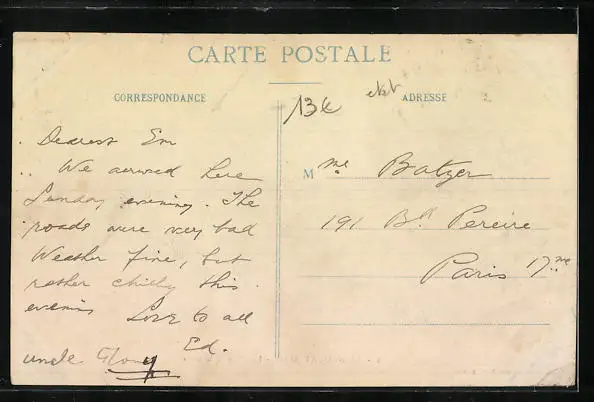 CARTE POSTALE
CORRESPONDANCE
ADRESSE
13k
Dearest Em
We arrived here
Sunday evening. The
roads were very bad
Weather fine, but
rather chilly this
evening Love to all
Ed.
uncle
Mme Batzer
191 Bd Pereire
Paris 17me